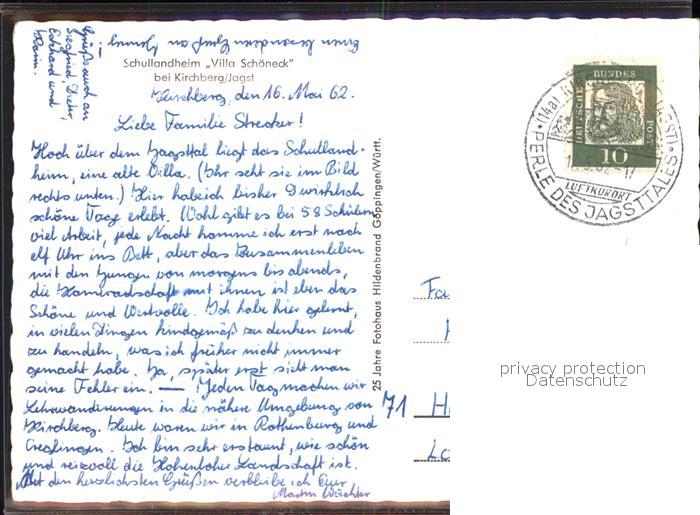 Einen besonderen Gruß an Hennig
Grüße auch an
Siegfried, Dieter,
Eckhard und
Schullandheim „Villa Schöneck"
bei Kirchberg/Jagst
Kirchberg, den 16. Mai 62.
Liebe Familie Strecker!
Hoch über dem Jagsttal liegt das Schulland-
heim, eine alte Villa. (Ihr seht sie im Bild
rechts unten.) Hier habe ich bisher 9 wirklich
schöne Tage erlebt. Wohl gibt es bei 58 Schülern
viel Arbeit, jede Nacht komme ich erst nach
elf Uhr ins Bett, aber das Zusammenleben
mit den Jungen von morgens bis abends,
die Kameradschaft mit ihnen ist eben das
Schöne und Wertvolle. Ich habe hier gelernt,
in vielen Dingen kindgemäß zu denken und
zu handeln, was ich früher nicht immer
gemacht habe. Ja, später erst sieht man
seine Fehler ein. — Jeden Tag machen wir
Lehrwanderungen in die nähere Umgebung von
Kirchberg. Heute waren wir in Rothenburg und
Creglingen. Ich bin sehr erstaunt, wie schön
und reizvoll die Hohenloher Landschaft ist.
Mit den herzlichsten Grüßen verbleibe ich Euer
Martin
25 Jahre Fotohaus Hildenbrand Göppingen/Württ.
DEUTSCHE BUNDES POST
10
LUFTKURORT
PERLE DES JAGSTTALES
Fa
71 H
La
privacy protection
Datenschutz